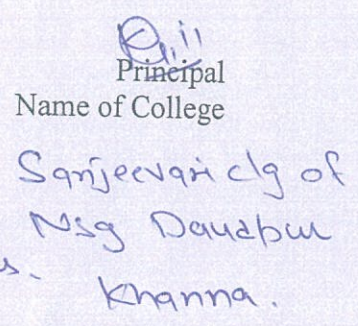 Principal
Name of College
Sanjeevani clg of
Nsg Daudpur
s. Khanna.